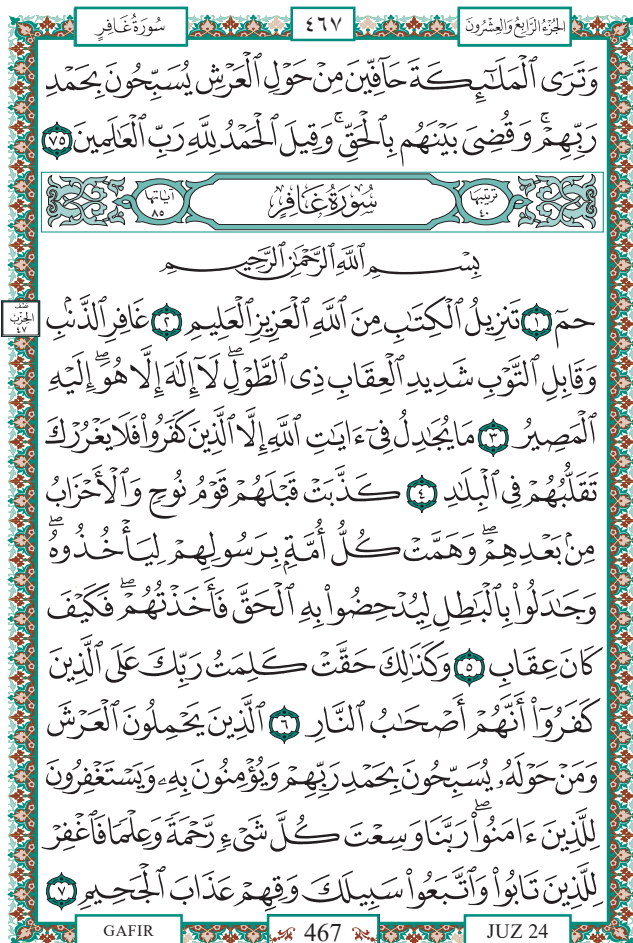 سُورَةُ غَافِرٍ ٤٦٧ الجُزْءُ الرَّابِعُ وَالعِشْرُونَ
وَتَرَى ٱلْمَلَـٰٓئِكَةَ حَآفِّينَ مِنْ حَوْلِ ٱلْعَرْشِ يُسَبِّحُونَ بِحَمْدِ
رَبِّهِمْۚ وَقُضِىَ بَيْنَهُم بِٱلْحَقِّۚ وَقِيلَ ٱلْحَمْدُ لِلَّهِ رَبِّ ٱلْعَـٰلَمِينَ ٧٥
ترتيبها ٤٠ سُورَةُ غَافِرٍ اياتها ٨٥
بِسْمِ ٱللَّهِ ٱلرَّحْمَـٰنِ ٱلرَّحِيمِ
نصف الحزب ٤٧
حمٓ ١ تَنزِيلُ ٱلْكِتَـٰبِ مِنَ ٱللَّهِ ٱلْعَزِيزِ ٱلْعَلِيمِ ٢ غَافِرِ ٱلذَّنۢبِ
وَقَابِلِ ٱلتَّوْبِ شَدِيدِ ٱلْعِقَابِ ذِى ٱلطَّوْلِۖ لَآ إِلَـٰهَ إِلَّا هُوَۖ إِلَيْهِ
ٱلْمَصِيرُ ٣ مَا يُجَـٰدِلُ فِىٓ ءَايَـٰتِ ٱللَّهِ إِلَّا ٱلَّذِينَ كَفَرُوا۟ فَلَا يَغْرُرْكَ
تَقَلُّبُهُمْ فِى ٱلْبِلَـٰدِ ٤ كَذَّبَتْ قَبْلَهُمْ قَوْمُ نُوحٍ وَٱلْأَحْزَابُ
مِنۢ بَعْدِهِمْۖ وَهَمَّتْ كُلُّ أُمَّةٍۭ بِرَسُولِهِمْ لِيَأْخُذُوهُۖ
وَجَـٰدَلُوا۟ بِٱلْبَـٰطِلِ لِيُدْحِضُوا۟ بِهِ ٱلْحَقَّ فَأَخَذْتُهُمْۖ فَكَيْفَ
كَانَ عِقَابِ ٥ وَكَذَٰلِكَ حَقَّتْ كَلِمَتُ رَبِّكَ عَلَى ٱلَّذِينَ
كَفَرُوٓا۟ أَنَّهُمْ أَصْحَـٰبُ ٱلنَّارِ ٦ ٱلَّذِينَ يَحْمِلُونَ ٱلْعَرْشَ
وَمَنْ حَوْلَهُۥ يُسَبِّحُونَ بِحَمْدِ رَبِّهِمْ وَيُؤْمِنُونَ بِهِۦ وَيَسْتَغْفِرُونَ
لِلَّذِينَ ءَامَنُوا۟ۖ رَبَّنَا وَسِعْتَ كُلَّ شَىْءٍ رَّحْمَةً وَعِلْمًا فَٱغْفِرْ
لِلَّذِينَ تَابُوا۟ وَٱتَّبَعُوا۟ سَبِيلَكَ وَقِهِمْ عَذَابَ ٱلْجَحِيمِ ٧
GAFIR 467 JUZ 24